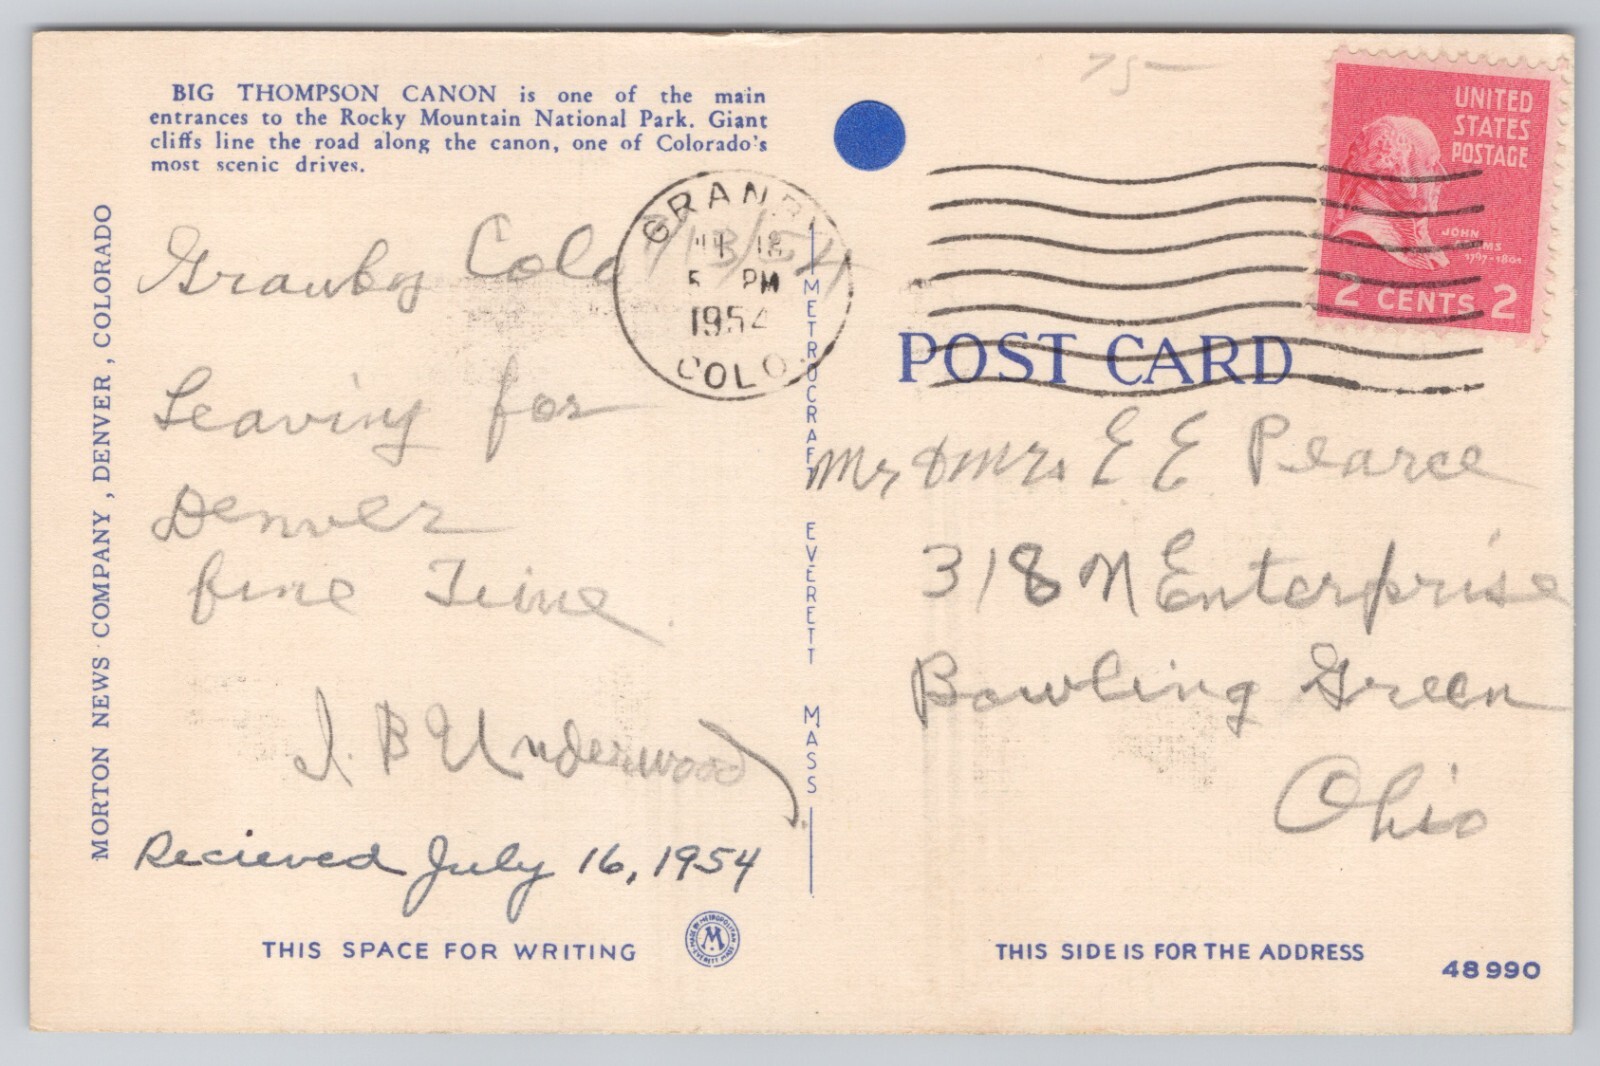 75-
BIG THOMPSON CANON is one of the main
entrances to the Rocky Mountain National Park. Giant
cliffs line the road along the canon, one of Colorado's
most scenic drives.
MORTON NEWS COMPANY, DENVER, COLORADO
Granby Colo 7/13/54
Leaving for
Denver
fine Time
I. B Underwood
Recieved July 16, 1954
THIS SPACE FOR WRITING
MADE BY METROPOLITAN
M
EVERETT MASS
METROCRAFT EVERETT MASS
GRANBY
13
5 PM
1954
COLO.
UNITED
STATES
POSTAGE
JOHN
ADAMS
1797-1801
2 CENTS 2
POST CARD
Mr & Mrs E E Pearce
318 N Enterprise
Bowling Green
Ohio
THIS SIDE IS FOR THE ADDRESS
48990